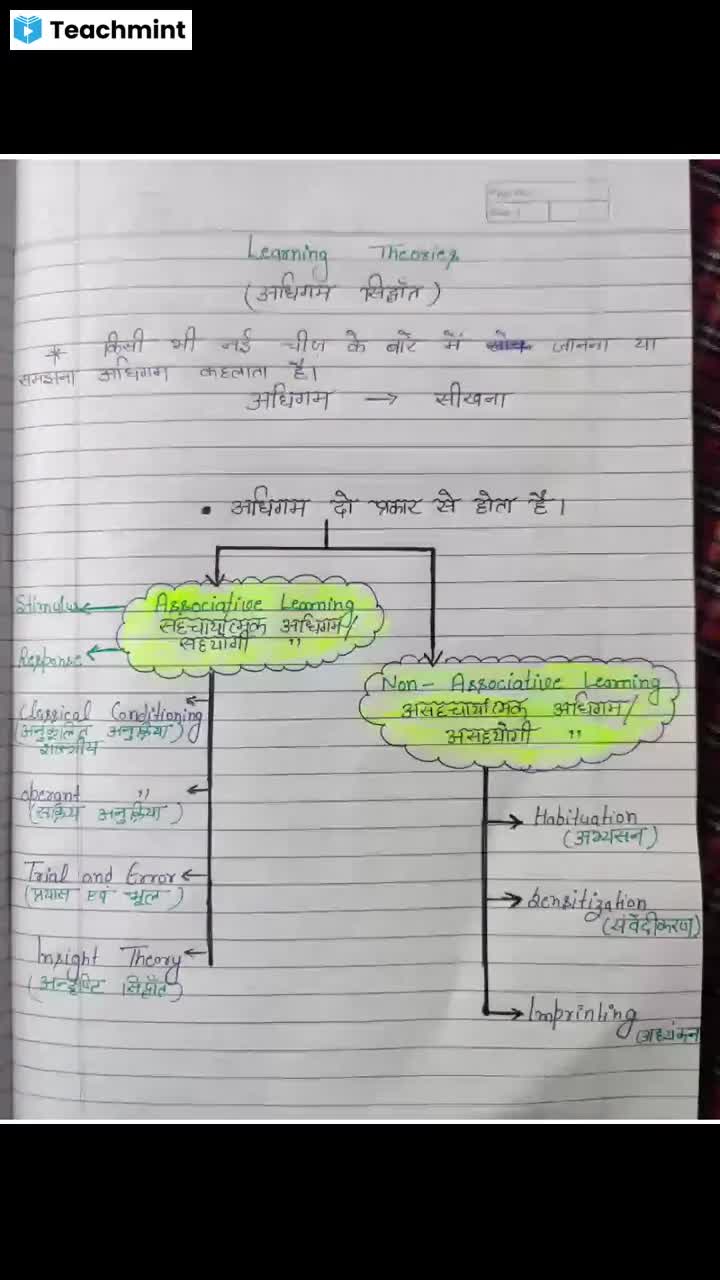 Teachmint
Learning Theories
(अधिगम सिद्धाँत)
* किसी भी नई चीज के बारे में जानना या
समझना अधिगम कहलाता है।
अधिगम → सीखना
• अधिगम दो प्रकार से होता है।
Stimulus
Response
Associative Learning
सहचार्यात्मक अधिगम/
सहयोगी "
Classical Conditioning
(अनुकूलित अनुक्रिया)
शास्त्रीय
operant "
(सक्रिय अनुक्रिया)
Trial and Error
(प्रयास एवं भूल)
Insight Theory
(अन्तदृष्टि सिद्धाँत)
Non-Associative Learning
असहचार्यात्मक अधिगम/
असहयोगी "
Habituation
(अभ्यसन)
Sensitization
(संवेदीकरण)
Imprinting